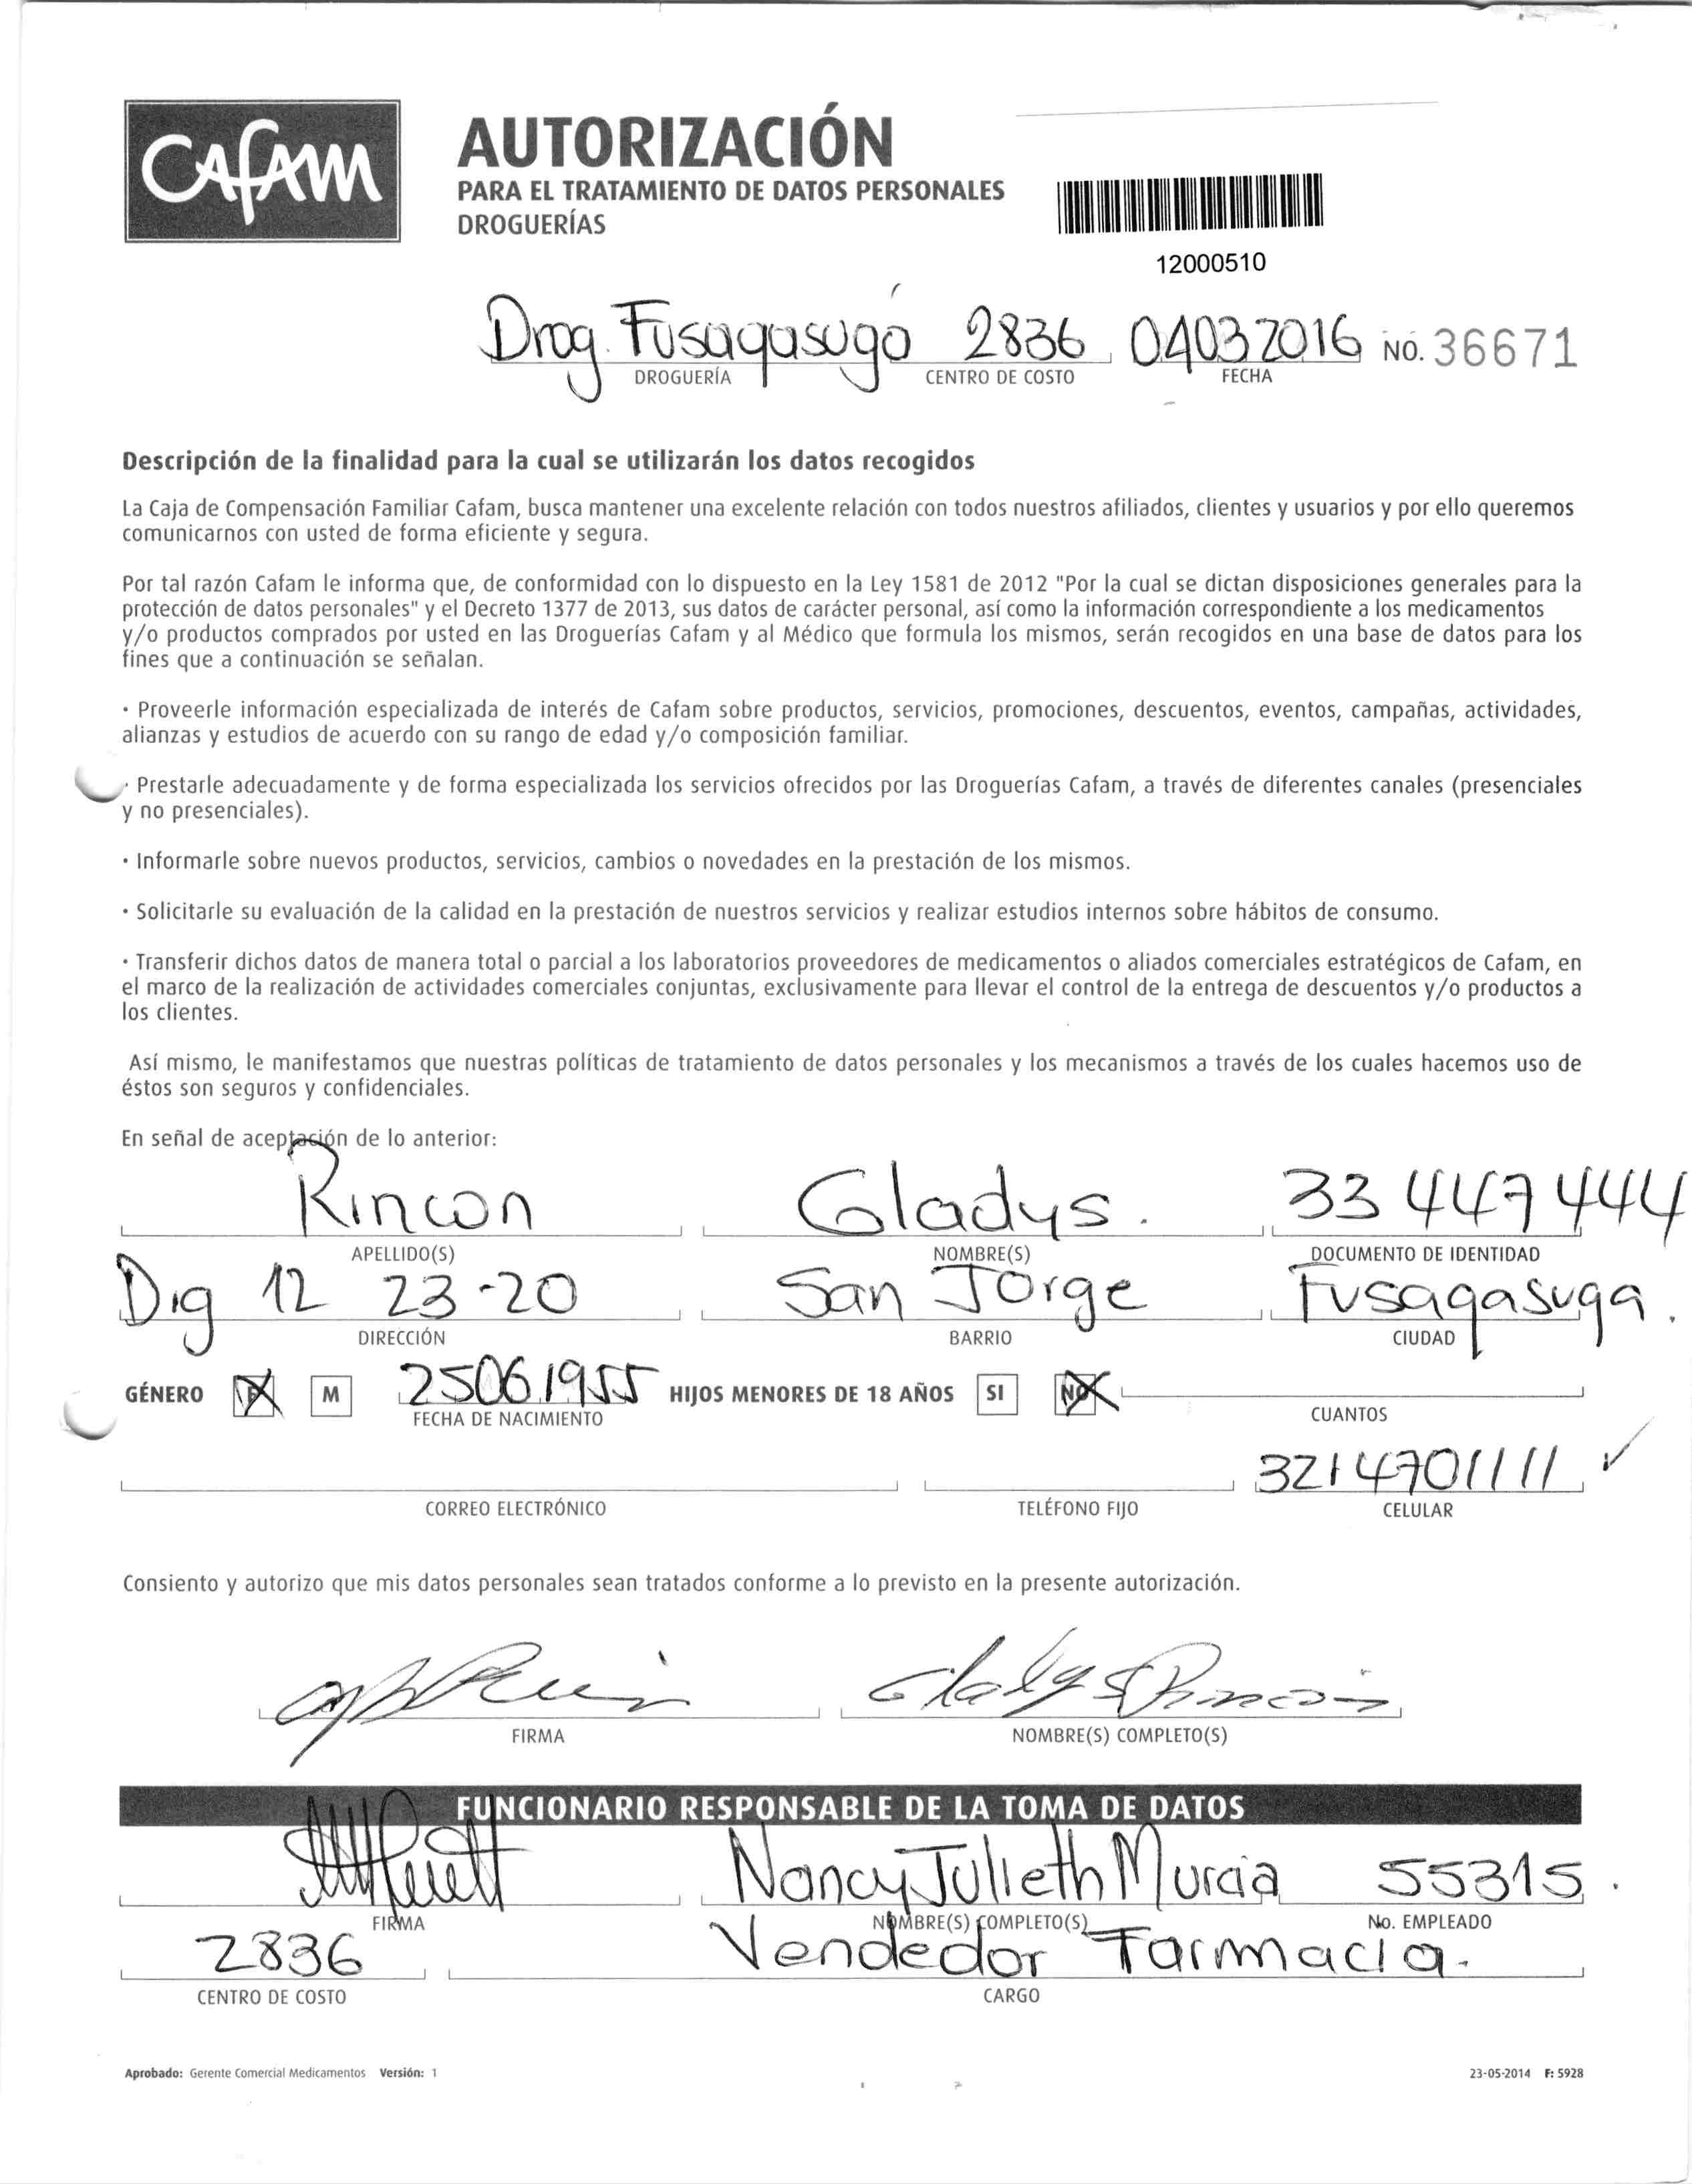 CAFAM
AUTORIZACIÓN
PARA EL TRATAMIENTO DE DATOS PERSONALES
DROGUERÍAS
12000510
Drog. Fusagasugá 2836 04032016 NO. 36671
DROGUERÍA CENTRO DE COSTO FECHA
Descripción de la finalidad para la cual se utilizarán los datos recogidos
La Caja de Compensación Familiar Cafam, busca mantener una excelente relación con todos nuestros afiliados, clientes y usuarios y por ello queremos
comunicarnos con usted de forma eficiente y segura.
Por tal razón Cafam le informa que, de conformidad con lo dispuesto en la Ley 1581 de 2012 "Por la cual se dictan disposiciones generales para la
protección de datos personales" y el Decreto 1377 de 2013, sus datos de carácter personal, así como la información correspondiente a los medicamentos
y/o productos comprados por usted en las Droguerías Cafam y al Médico que formula los mismos, serán recogidos en una base de datos para los
fines que a continuación se señalan.
· Proveerle información especializada de interés de Cafam sobre productos, servicios, promociones, descuentos, eventos, campañas, actividades,
alianzas y estudios de acuerdo con su rango de edad y/o composición familiar.
· Prestarle adecuadamente y de forma especializada los servicios ofrecidos por las Droguerías Cafam, a través de diferentes canales (presenciales
y no presenciales).
· Informarle sobre nuevos productos, servicios, cambios o novedades en la prestación de los mismos.
· Solicitarle su evaluación de la calidad en la prestación de nuestros servicios y realizar estudios internos sobre hábitos de consumo.
· Transferir dichos datos de manera total o parcial a los laboratorios proveedores de medicamentos o aliados comerciales estratégicos de Cafam, en
el marco de la realización de actividades comerciales conjuntas, exclusivamente para llevar el control de la entrega de descuentos y/o productos a
los clientes.
Así mismo, le manifestamos que nuestras políticas de tratamiento de datos personales y los mecanismos a través de los cuales hacemos uso de
éstos son seguros y confidenciales.
En señal de aceptación de lo anterior:
Rincon Gladys. 33 447 444
APELLIDO(S) NOMBRE(S) DOCUMENTO DE IDENTIDAD
Dig 12 23-20 San Jorge Fusagasuga.
DIRECCIÓN BARRIO CIUDAD
GÉNERO F M 25061955 HIJOS MENORES DE 18 AÑOS SI NO
FECHA DE NACIMIENTO CUANTOS
3214701111
CORREO ELECTRÓNICO TELÉFONO FIJO CELULAR
Consiento y autorizo que mis datos personales sean tratados conforme a lo previsto en la presente autorización.
Gladys Rincon
FIRMA NOMBRE(S) COMPLETO(S)
FUNCIONARIO RESPONSABLE DE LA TOMA DE DATOS
Nancy Julieth Murcia 55315.
FIRMA NOMBRE(S) COMPLETO(S) No. EMPLEADO
2836 Vendedor Farmacia.
CENTRO DE COSTO CARGO
Aprobado: Gerente Comercial Medicamentos Versión: 1 23-05-2014 F: 5928